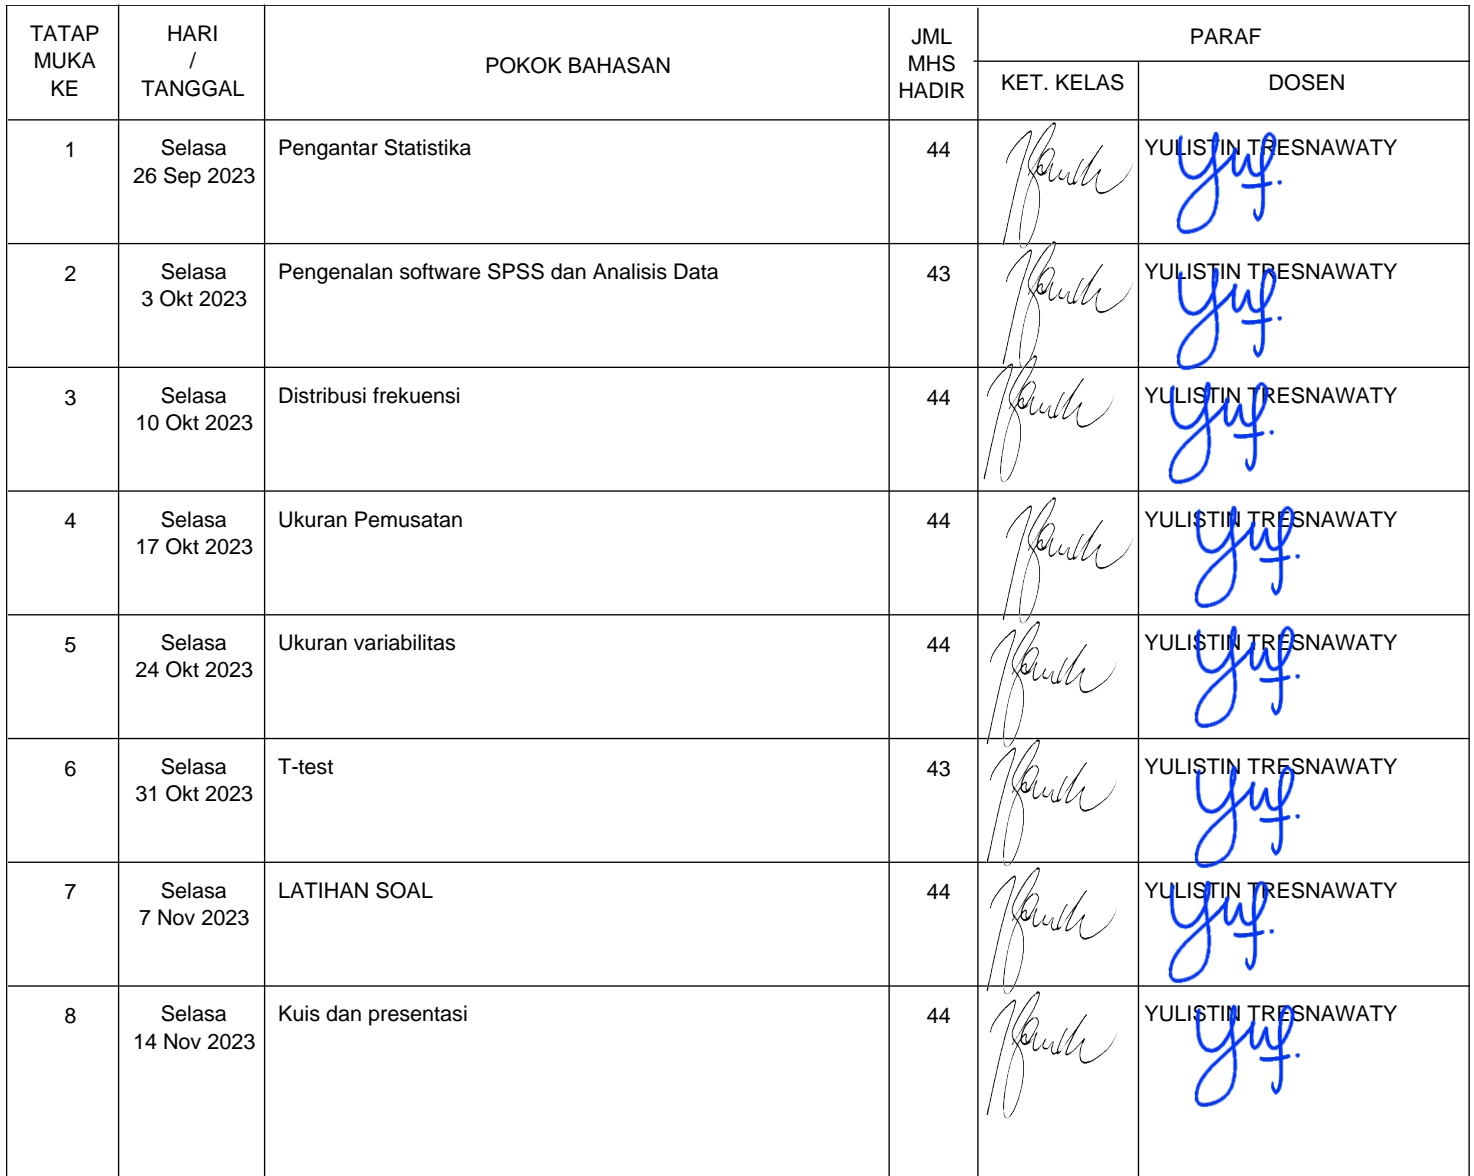 TATAP
MUKA
KE
HARI
/
TANGGAL
POKOK BAHASAN
JML
MHS
HADIR
PARAF
KET. KELAS
DOSEN
1
Selasa
26 Sep 2023
Pengantar Statistika
44
YULISTIN TRESNAWATY
2
Selasa
3 Okt 2023
Pengenalan software SPSS dan Analisis Data
43
YULISTIN TRESNAWATY
3
Selasa
10 Okt 2023
Distribusi frekuensi
44
YULISTIN TRESNAWATY
4
Selasa
17 Okt 2023
Ukuran Pemusatan
44
YULISTIN TRESNAWATY
5
Selasa
24 Okt 2023
Ukuran variabilitas
44
YULISTIN TRESNAWATY
6
Selasa
31 Okt 2023
T-test
43
YULISTIN TRESNAWATY
7
Selasa
7 Nov 2023
LATIHAN SOAL
44
YULISTIN TRESNAWATY
8
Selasa
14 Nov 2023
Kuis dan presentasi
44
YULISTIN TRESNAWATY